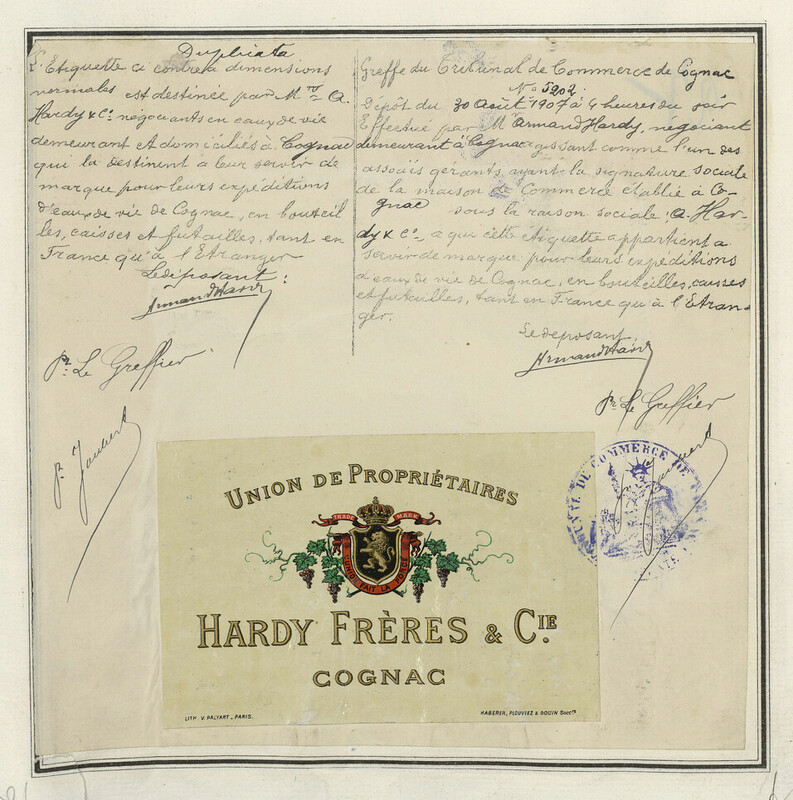 Duplicata
L'Etiquette ci contre à dimensions
normales est destinée par Mrs A.
Hardy & Co. négociants en eaux de vie
demeurant et domiciliés à Cognac
qui la destinent à leur servir de
marque pour leurs expéditions
d'eaux de vie de Cognac, en bouteil
les, caisses et futailles, tant en
France qu'à l'Etranger
Le déposant:
Armand Hardy
pr. Le Greffier
pr. Jaubert
Greffe du Tribunal de Commerce de Cognac
No 5902.
Dépôt du 30 Août 1907 à 4 heures du soir
Effectué par Mr Armand Hardy, négociant
demeurant à Cognac agissant comme l'un des
associés gérants ayant la signature sociale
de la maison de Commerce établie à Co-
gnac sous la raison sociale: A. Har-
dy & Co. a qui cette étiquette appartient a
servir de marque pour leurs expéditions
d'eaux de vie de Cognac, en bouteilles, caisses
et futailles, tant en France qu'à l'Etran-
ger.
Le déposant,
Armand Hardy
pr Le Greffier
Jaubert
DE COMMERCE DE
UNION DE PROPRIÉTAIRES
TRADE MARK
L'UNION FAIT LA FORCE
HARDY FRÈRES & CIE
COGNAC
LITH. V. PALYART_PARIS.
HABERER, PLOUVIEZ & DOUIN Succrs